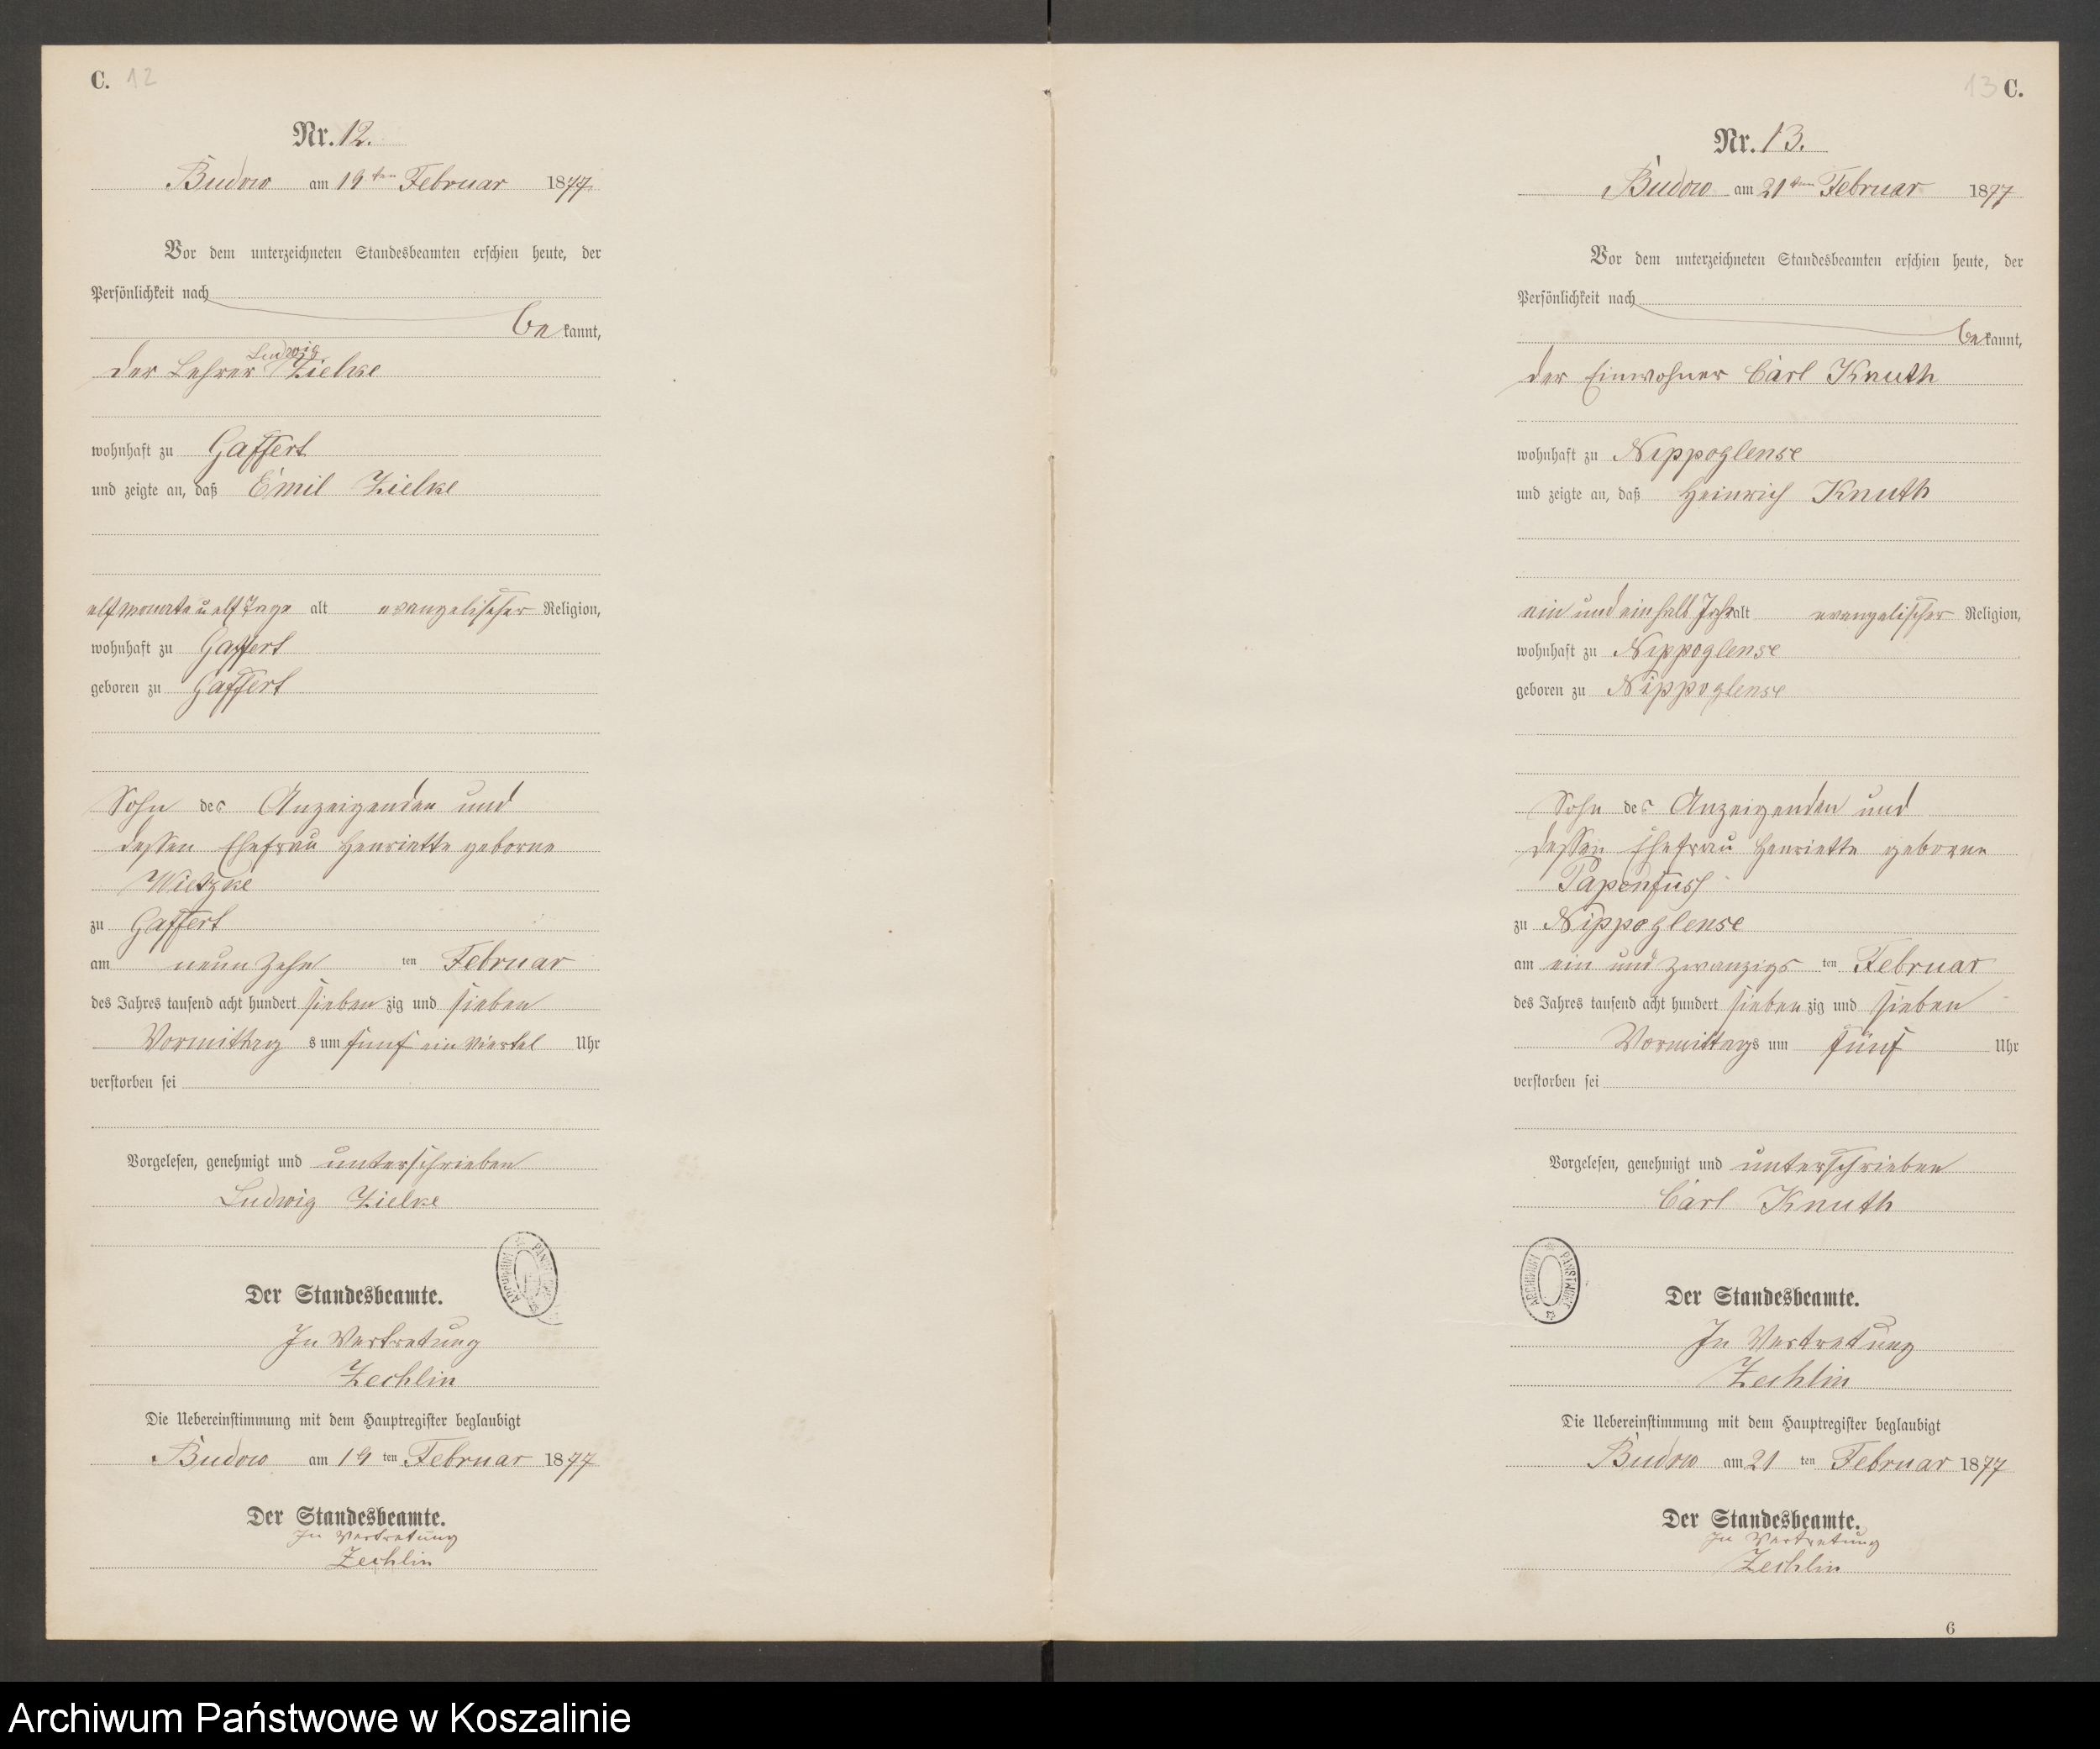 C. 12
Nr. 12.
Budow am 19ten Februar 1877
Vor dem unterzeichneten Standesbeamten erschien heute, der
Persönlichkeit nach
bekannt,
Ludwig
der Lehrer Zielke
wohnhaft zu Gaffert
und zeigte an, daß Emil Zielke
elf Monate u elf Tage alt evangelischer Religion,
wohnhaft zu Gaffert
geboren zu Gaffert
Sohn des Anzeigenden und
dessen Ehefrau Henriette geborne
Wietzke
zu Gaffert
am neun zehn ten Februar
des Jahres tausend acht hundert sieben zig und sieben
Vormittag s um fünf ein Viertel Uhr
verstorben sei
Vorgelesen, genehmigt und unterschrieben
Ludwig Zielke
Der Standesbeamte.
In Vertretung
Zechlin
Die Uebereinstimmung mit dem Hauptregister beglaubigt
Budow am 19 ten Februar 1877
Der Standesbeamte.
In Vertretung
Zechlin
13 C.
Nr. 13.
Budow am 21ten Februar 1877
Vor dem unterzeichneten Standesbeamten erschien heute, der
Persönlichkeit nach
bekannt,
der Einwohner Carl Knuth
wohnhaft zu Nippoglense
und zeigte an, daß Heinrich Knuth
ein und ein halb Jahr alt evangelischer Religion,
wohnhaft zu Nippoglense
geboren zu Nippoglense
Sohn des Anzeigenden und
dessen Ehefrau Henriette geborne
Papenfuss
zu Nippoglense
am ein und zwanzigs ten Februar
des Jahres tausend acht hundert sieben zig und sieben
Vormittags um fünf Uhr
verstorben sei
Vorgelesen, genehmigt und unterschrieben
Carl Knuth
ARCHIWUM PAŃSTWOWE
Der Standesbeamte.
In Vertretung
Zechlin
Die Uebereinstimmung mit dem Hauptregister beglaubigt
Budow am 21 ten Februar 1877
Der Standesbeamte.
In Vertretung
Zechlin
6
Archiwum Państwowe w Koszalinie